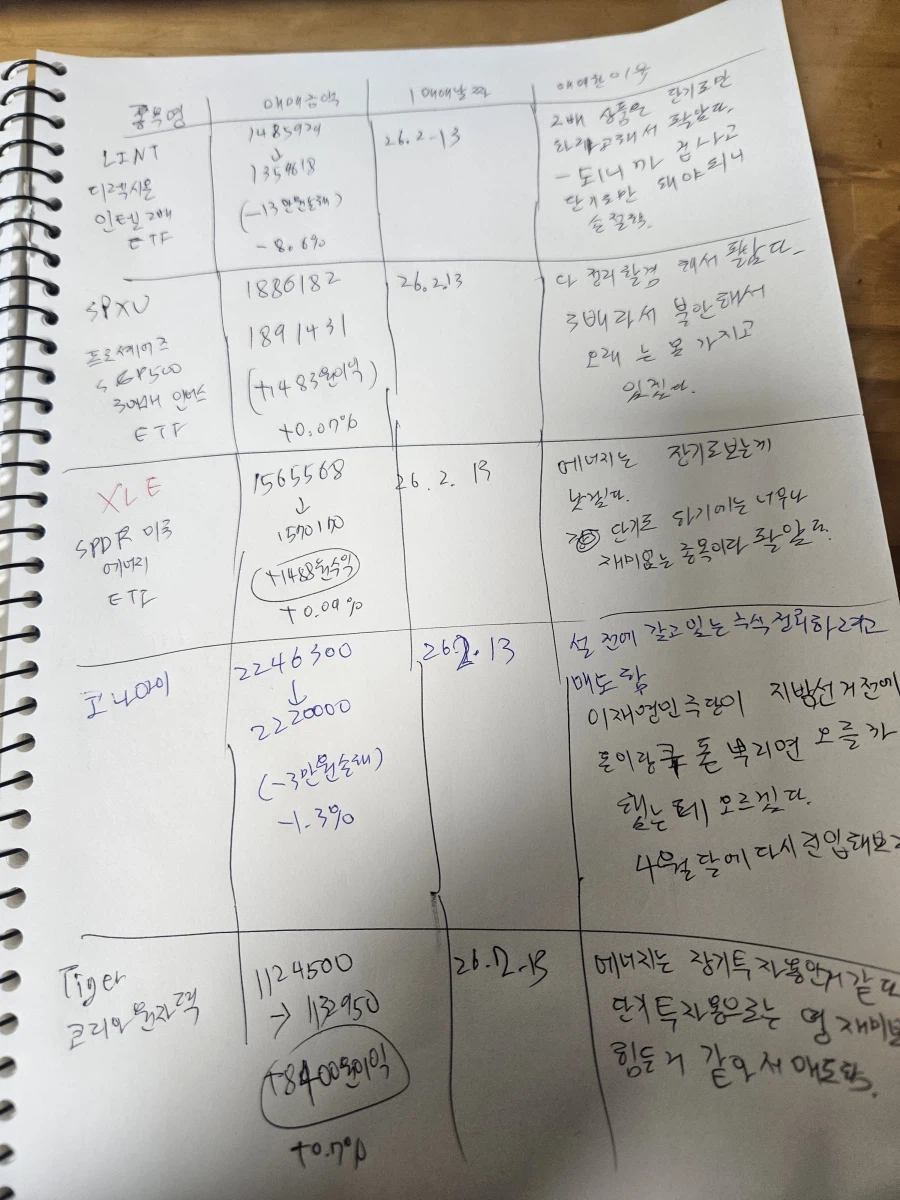 종목명
매매금액
매매날짜
매매한 이유
LINT
디렉시온
인텔 2배
ETF
1485929
↓
26.2.13
2배 상품은 단기로만
하라고해서 팔았다.
단기로만 해야되니
손절함.
-8.6%
SPXU
프로쉐어즈
S&P500
3배 인버스
ETF
1886182
1891431
(+1483원이익)
+0.07%
26.2.13
다 정리할겸 해서 팔았다.
3배라서 불안해서
오래는 못 가지고
있겠다.
XLE
SPDR 미국
에너지
ETF
1565568
↓
1570170
+1488원수익
+0.09%
26.2.13
에너지는 장기로보는게
낫겠다.
단기로 하기에는 너무나
재미없는 종목이라 팔았다.
코나아이
2246300
↓
2220000
(-3만원손해)
-1.3%
26.2.13
설 전에 갖고있는 주식 정리하려고
매도함
이재명민주당이 지방선거전에
돈 뿌리면 오를까
했는데 모르겠다.
4월달에 다시 진입해보
Tiger
코리아원자력
1124500
→ 1132950
+8400원이익
+0.7%
26.2.13
에너지는 장기투자용인거 같다
단기투자용으로는 영 재미보
힘든거 같아서 매도함.